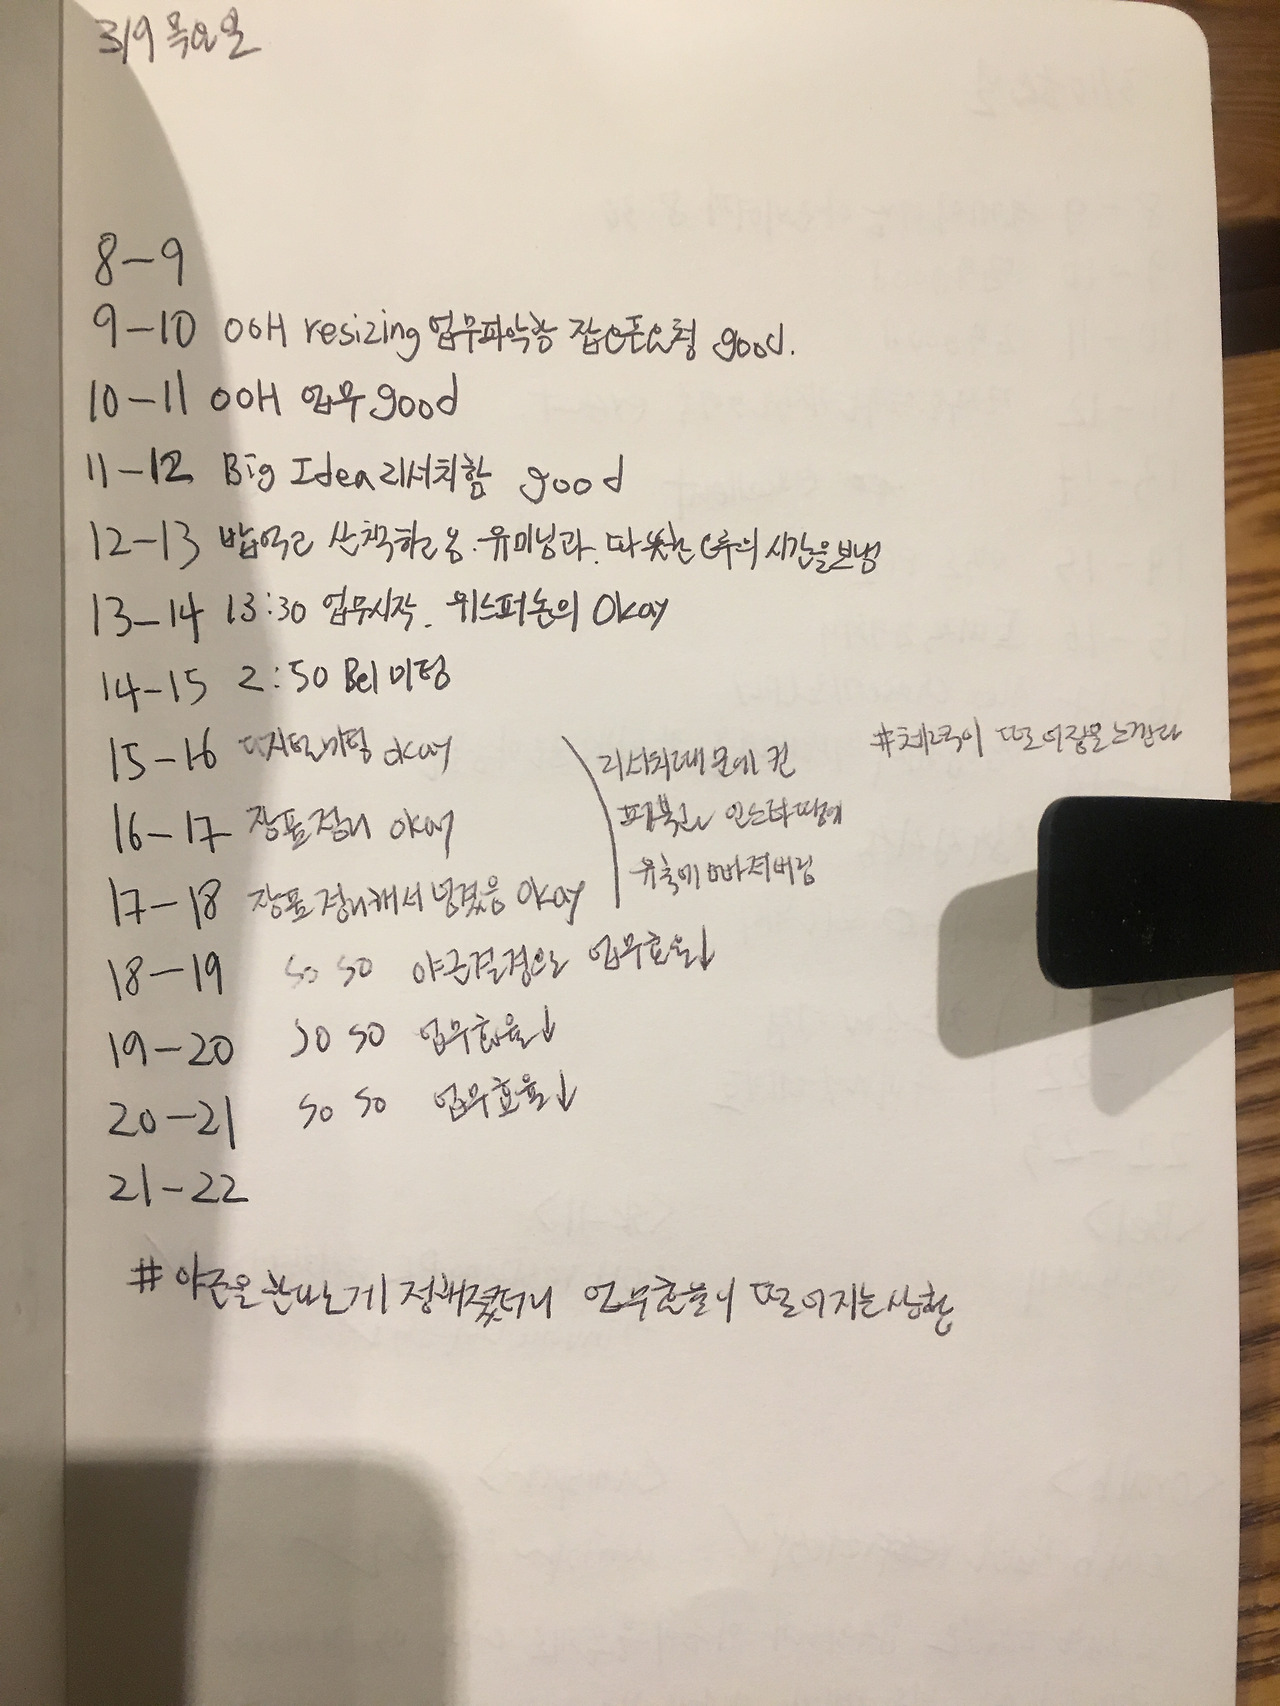 3/9 목요일
8-9
9-10 OOH resizing 업무파악함 잡오픈요청 good.
10-11 OOH 업무 good
11-12 Big Idea 리서치함 good
12-13 밥먹고 산책하고옴. 유미님과. 따뜻한 하루의 시간을보냄
13-14 13:30 업무시작. 위스퍼논의 Okay
14-15 2:50 Bel 미팅
15-16 디지털미팅 okay
16-17 장표정리 okay
17-18 장표정리해서 넘겼음 okay
리서치때문에 킨
페북과 인스타땜에
유혹에 빠져버림
#체력이 떨어짐을 느낀다
18-19 so so 야근결정으로 업무효율↓
19-20 so so 업무효율↓
20-21 so so 업무효율↓
21-22
# 야근을한다는게 정해졌더니 업무효율이 떨어지는상황